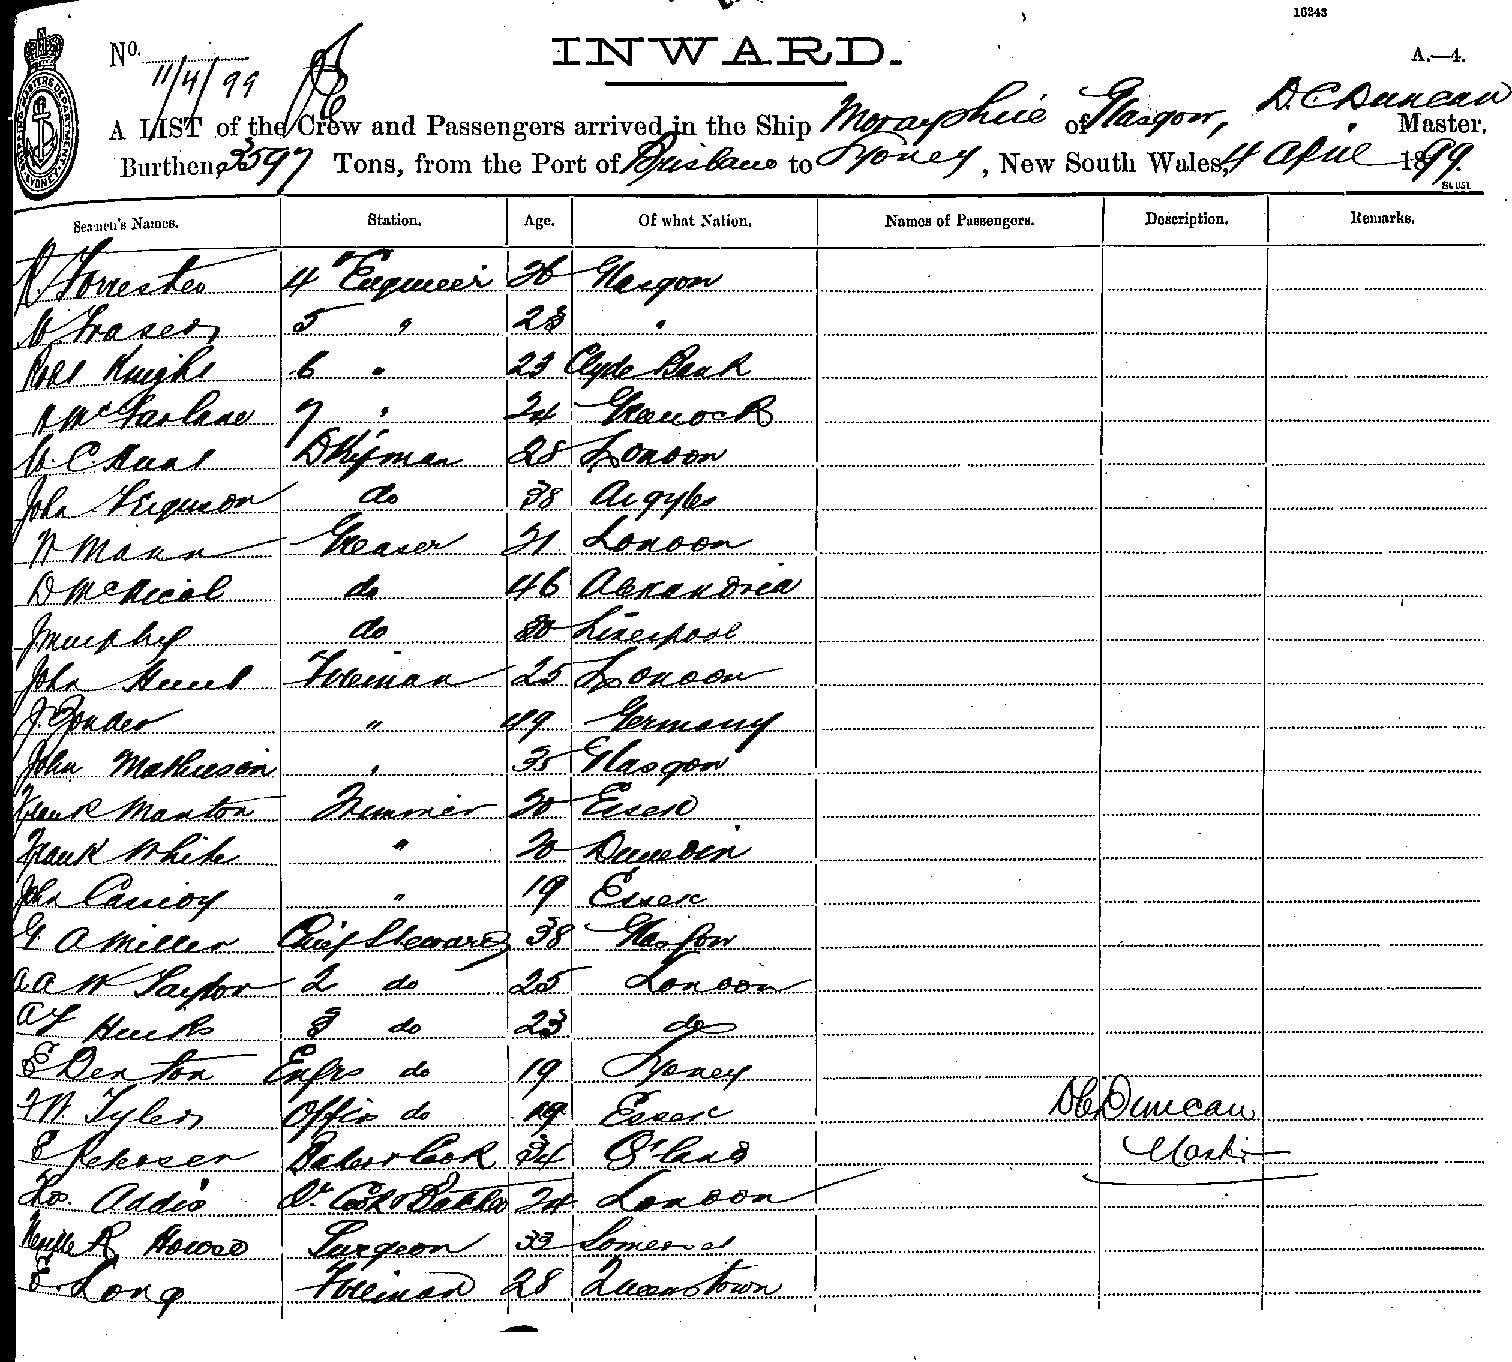 16243
No. 11/4/99
INWARD.
A.—4.
A LIST of the Crew and Passengers arrived in the Ship Morayshire of Glasgow, D. C. Duncan Master,
Burthen, 3597 Tons, from the Port of Brisbane to Sydney, New South Wales, 4 April 1899.
Seamen's Names. Station. Age. Of what Nation. Names of Passengers. Description. Remarks.
R Forrester 4th Engineer 26 Glasgow
W Fraser 5 " 23 "
Robt Knight 6 " 23 Clyde Bank
McFarlane 7 " 24 Greenock
W C Hunt Dkyman 28 London
John Ferguson do 38 Argyles
W Mann Greaser 21 London
D McNicol do 46 Alexandria
J Murphy do 30 Liverpool
John Hunt Fireman 25 London
J. " 49 Germany
John Mathieson " 35 Glasgow
Frank Manton Trimmer 20 Essex
Frank White " 20 Dunedin
John " 19 Essex
G A Miller Chief Steward 38 Glasgow
A A W Taylor 2 do 25 London
Hinks 3 do 23 do
E Denton Engrs do 19 Sydney
F W. Tyler Offirs do 19 Essex
D C Duncan
E Baker & Cook 34
Master
Addis Cook & Baker 24 London
Neville R Howse Surgeon 33 Somerset
E. Long Fireman 28 Queenstown